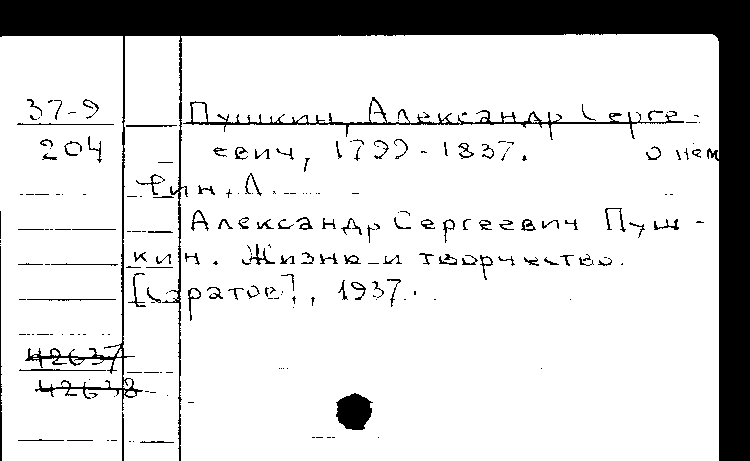 37-9 Пушкин, Александр Серге-
204 евич, 1799-1837. О нем
Л.
Александр Сергеевич Пуш-
кин. Жизнь и творчество.
[Саратов], 1937.
42637
42638